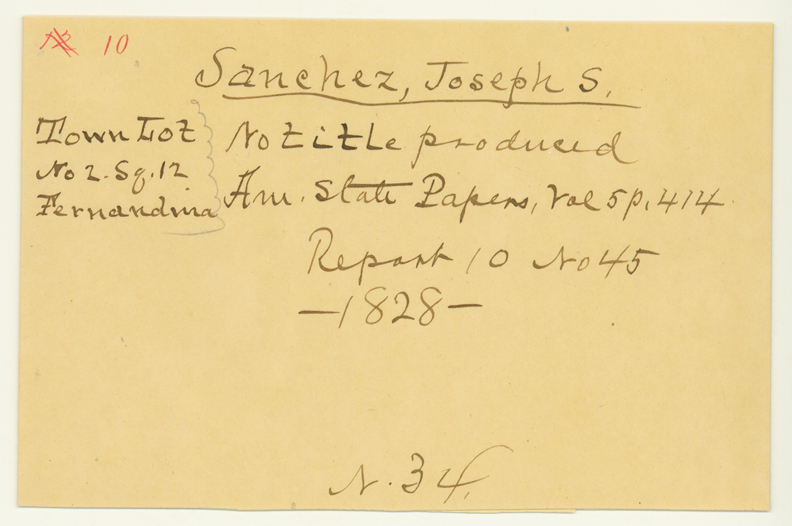 10
Sanchez, Joseph S.
Town Lot
No 2. Sq. 12
Fernandina
No title produced
Am. State Papers, Vol 5 p. 414
Report 10 No 45
—1828—
N. 34